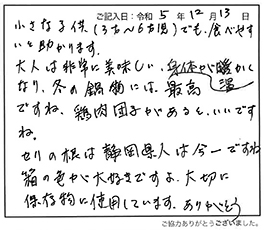 ご記入日：令和 5 年 12 月 13 日
小さな子供（3才～6才児）でも、食べやす
いと助かります。
大人は非常に美味しい、身体が暖かく
なり、冬の鍋物には最高
ですね、鶏肉団子があると、いいです
ね。
セリの根は静岡県人は今一ですね
箱の色が大好きですよ、大切に
保存物に使用しています。ありがとう
ご協力ありがとうございました。